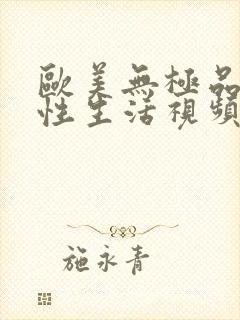 歐美無極品
性生活視頻
施永青